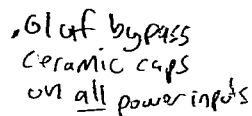 .01uf bypass
ceramic caps
on all power inputs